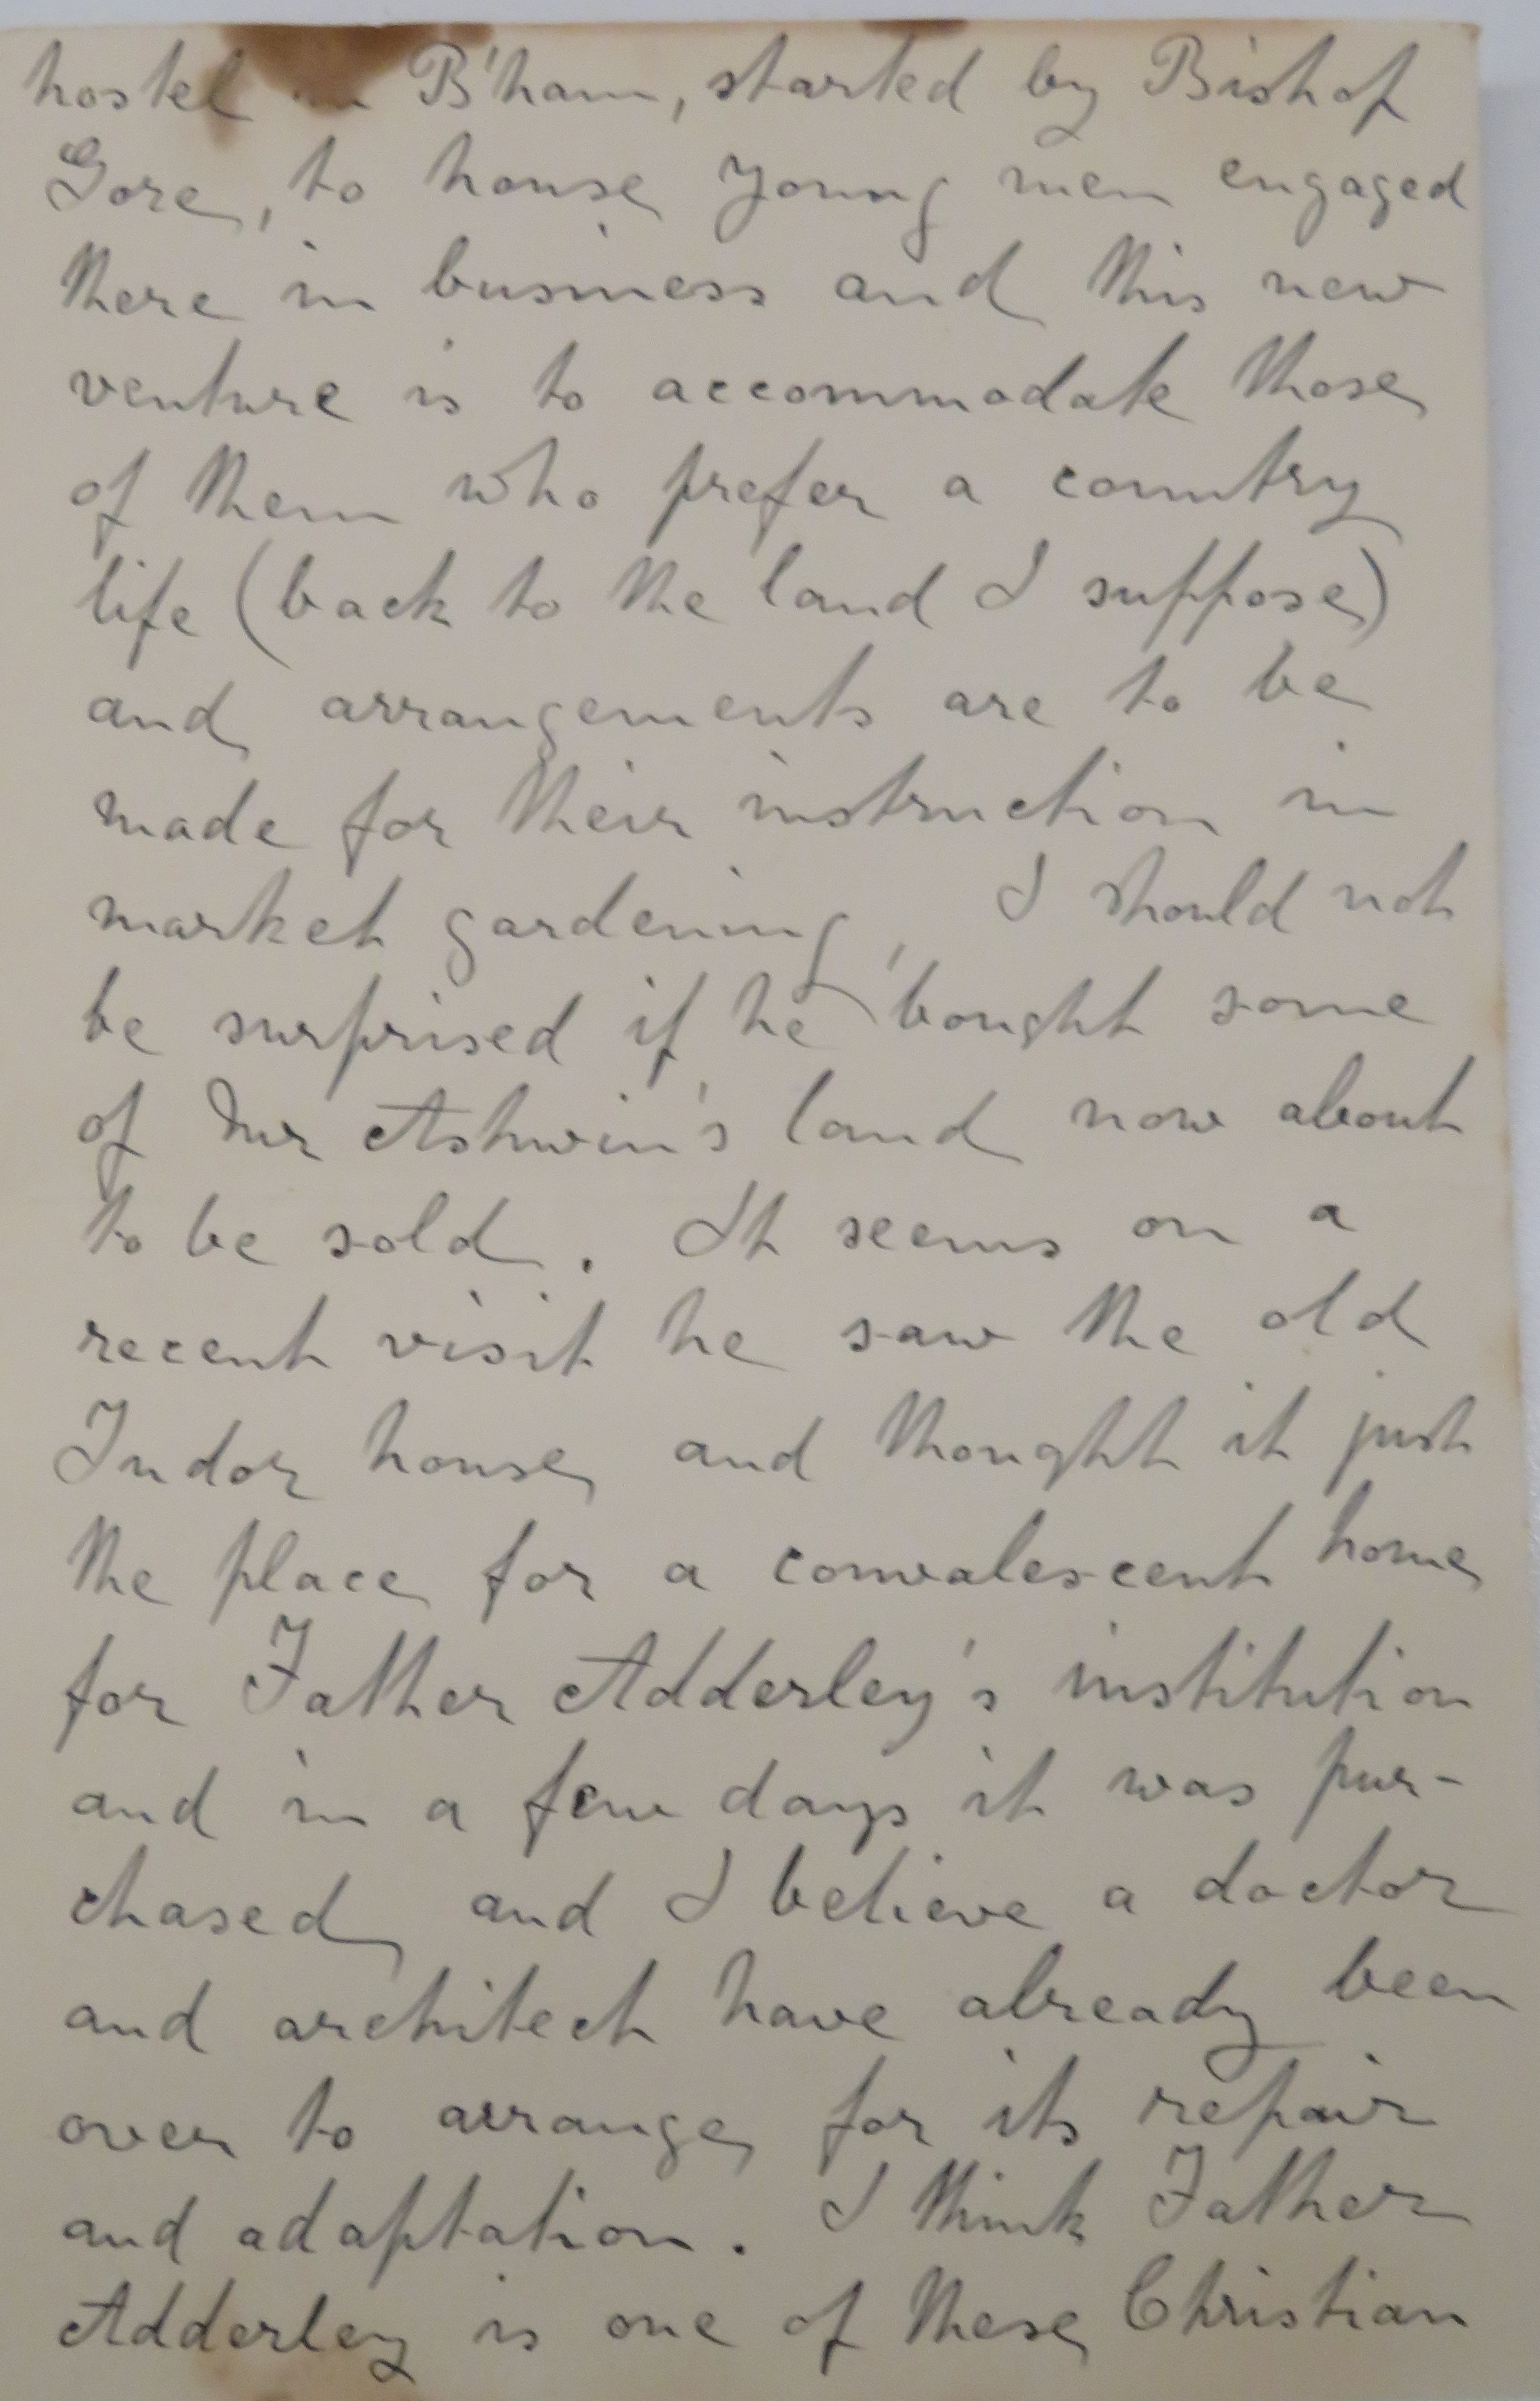 hostel in B'ham, started by Bishop
Gore, to house young men engaged
there in business and this new
venture is to accommodate those
of them who prefer a country
life (back to the land I suppose)
and arrangements are to be
made for their instruction in
market gardening, I should not
be surprised if he bought some
of Mr Ashwin's land now about
to be sold. It seems on a
recent visit he saw the old
Tudor house and thought it just
the place for a convalescent home
for Father Adderley's institution
and in a few days it was pur-
chased and I believe a doctor
and architect have already been
over to arrange for its repair
and adaptation. I think Father
Adderley is one of these Christian